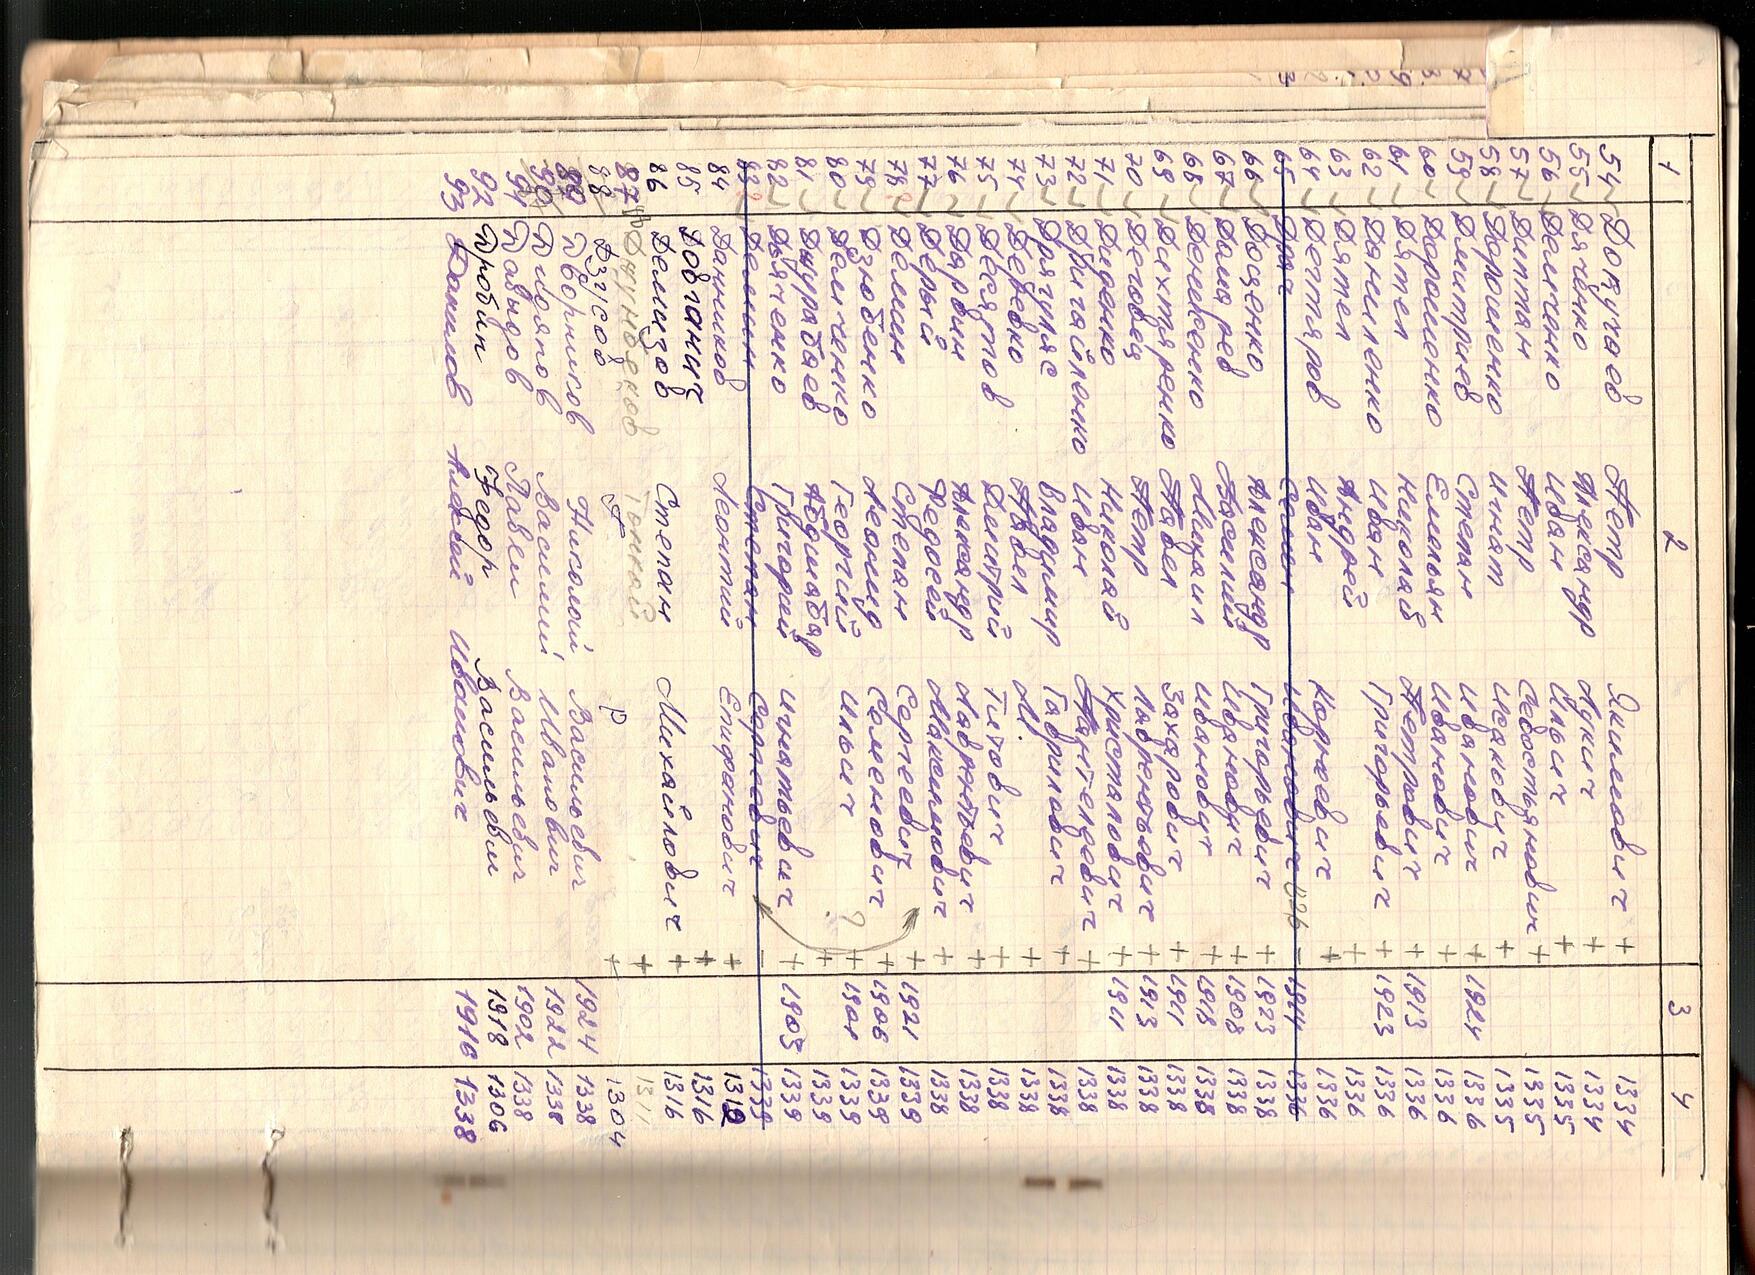 1 2 3 4
54 Докучаев Петр Акимович + 1334
55 Дяченко Александр Лукич + 1334
56 Демченко Иван Ильич + 1335
57 Дитман Петр Севостьянович + 1335
58 Дорошенко Игнат Исакович + 1335
59 Дмитриев Степан Иванович + 1924 1336
60 Дорошенко Емельян Иванович + 1336
61 Дятел Николай Петрович + 1913 1336
62 Даниленко Иван Григорьевич + 1923 1336
63 Дятел Андрей + 1336
64 Дегтяров Иван Корнеевич + 1336
65 Семен Иванович - 1914 1336
66 Доценко Александр Григорьевич + 1923 1338
67 Дашкев Василий Иванович + 1908 1338
68 Денисенко Михаил Иванович + 1918 1338
69 Дихтяренко Павел Захарович + 1911 1338
70 Деговец Петр Лаврентьевич + 1913 1338
71 Диденко Николай Христапович + 1911 1338
72 Дригайленко Иван Пантелеевич + 1338
73 Дрягуля Владимир Гаврилович + 1338
74 Деревко Павел М. + 1338
75 Девятов Дмитрий Титович + 1338
76 Даровин Александр Лаврентьевич + 1338
77 Дерый Федосей Максимович + 1338
78 Демин Степан Сергеевич + 1921 1339
79 Дзюбенко Леонид Семенович + 1906 1339
80 Демченко Георгий Ильич ? + 1901 1339
81 Джурабаев Абдижабар + 1339
82 Дьяченко Григорий Игнатьевич + 1905 1339
83 Демин Степан Сергеевич - 1339
84 Данников Леонтий Епифанович + 1312
85 Довганич + 1316
86 Демидов Степан Михайлович + 1316
87 Джунбеков Тонкай + 1311
88 Дзусов + 1304
89 Дворников Николай Васильевич 1924 1338
90 Дидяпов Василий Иванович 1922 1338
91 Давыдов Павел Васильевич 1902 1338
92 Дробин Федор Васильевич 1918 1306
93 Данилов Алексей Иванович 1916 1338